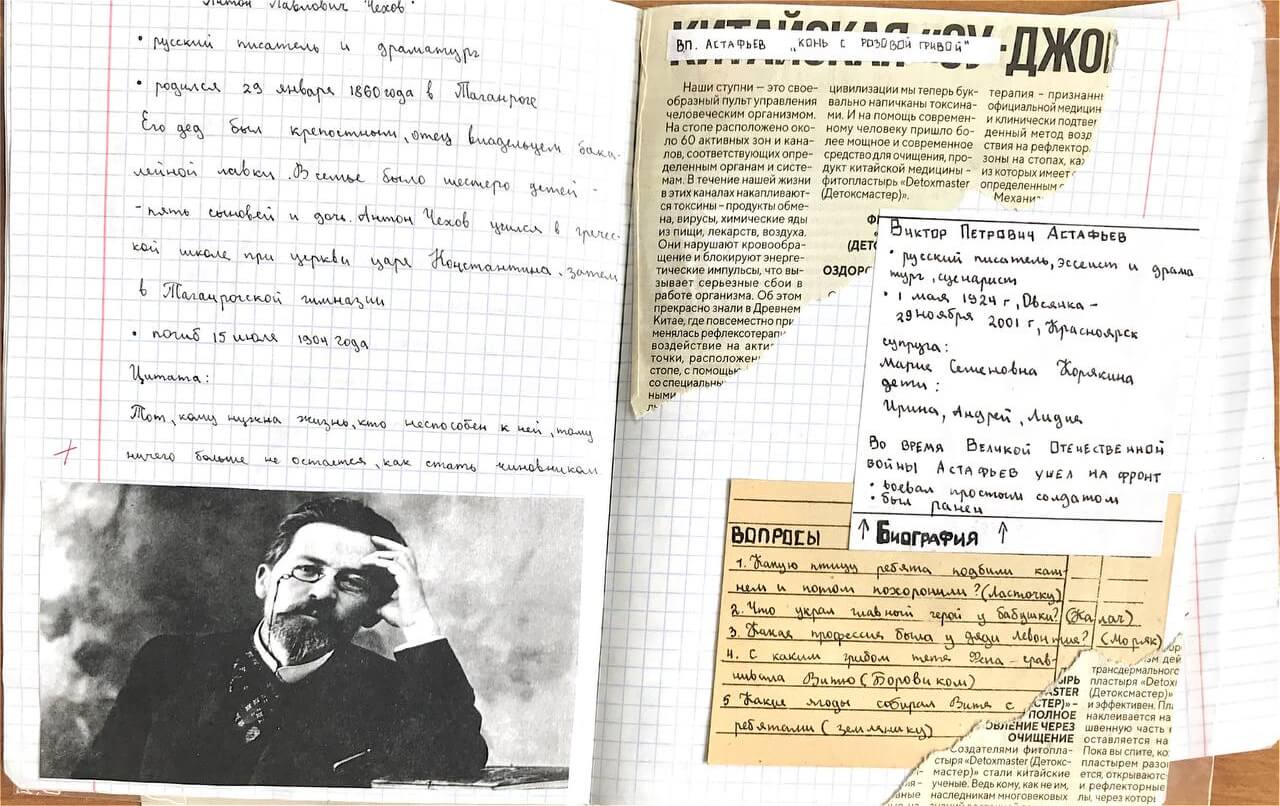 Антон Павлович Чехов
• русский писатель и драматург
• родился 29 января 1860 года в Таганроге
Его дед был крепостным, отец владельцем бака-
лейной лавки. В семье было шестеро детей -
- пять сыновей и дочь. Антон Чехов учился в гречес-
кой школе при церкви царя Константина, затем
в Таганрогской гимназии
• погиб 15 июля 1904 года
Цитата:
Тот, кому нужна жизнь, кто неспособен к ней, тому
ничего больше не остается, как стать чиновником
КИТАЙСКАЯ «СУ-ДЖО
ВП. АСТАФЬЕВ „КОНЬ С РОЗОВОЙ ГРИВОЙ"
Наши ступни — это свое-
образный пульт управления
человеческим организмом.
На стопе расположено око-
ло 60 активных зон и кана-
лов, соответствующих опре-
деленным органам и систе-
мам. В течение нашей жизни
в этих каналах накапливают-
ся токсины – продукты обме-
на, вирусы, химические яды
из пищи, лекарств, воздуха.
Они нарушают кровообра-
щение и блокируют энерге-
тические импульсы, что вы-
зывает серьезные сбои в
работе организма. Об этом
прекрасно знали в Древнем
Китае, где повсеместно при
менялась рефлексотерап
воздействие на акти
точки, расположен
стопе, с помощью
со специальны
ными
цивилизации мы теперь бук-
вально напичканы токсина-
ми. И на помощь современ-
ному человеку пришло бо-
лее мощное и современное
средство для очищения, про-
дукт китайской медицины –
фитопластырь «Detoxmaster
(Детоксмастер)».
(ДЕТО
ОЗДОРО
терапия – признанн
официальной медицин
и клинически подтве
денный метод возд
ствия на рефлектор
зоны на стопах, ка
из которых имеет
определенным
Механи
ВИКТОР ПЕТРОВИЧ АСТАФЬЕВ
• русский писатель, эссеист и драма
тург, сценарист
• 1 мая 1924 г, Овсянка –
29 ноября 2001 г, Красноярск
супруга:
Мария Семеновна Корякина
дети:
Ирина, Андрей, Лидия
ВО ВРЕМЯ ВЕЛИКОЙ ОТЕЧЕСТВЕННОЙ
ВОЙНЫ АСТАФЬЕВ УШЕЛ НА ФРОНТ
• воевал простым солдатом
• был ранен
↑ БИОГРАФИЯ ↑
ВОПРОСЫ
1. Какую птицу ребята подбили кам
нем и потом похоронили? (Ласточку)
2. Что украл главной герой у бабушки? (Калач)
3. Какая профессия была у дяди Левонтия? (Моряк)
4. С каким грибом тетя Фена - срав-
нивала Витю (Боровиком)
5 Какие ягоды собирал Витя с
ребятами (землянику)
MASTER
СТЕР)» -
ПОЛНОЕ
ОВЛЕНИЕ ЧЕРЕЗ
ОЧИЩЕНИЕ
Создателями фитопла-
стыря «Detoxmaster (Детокс-
мастер)» стали китайские
ученые. Ведь кому, как не им,
наследникам многовековых
зм дей
трансдермального
пластыря «Detoxi
(Детоксмастер)»
и эффективен. Пл
наклеивается на
швенную часть
оставляется на
Пока вы спите, ко
пластырем разо
ется, открываютс
и рефлекторные
лы, через котор